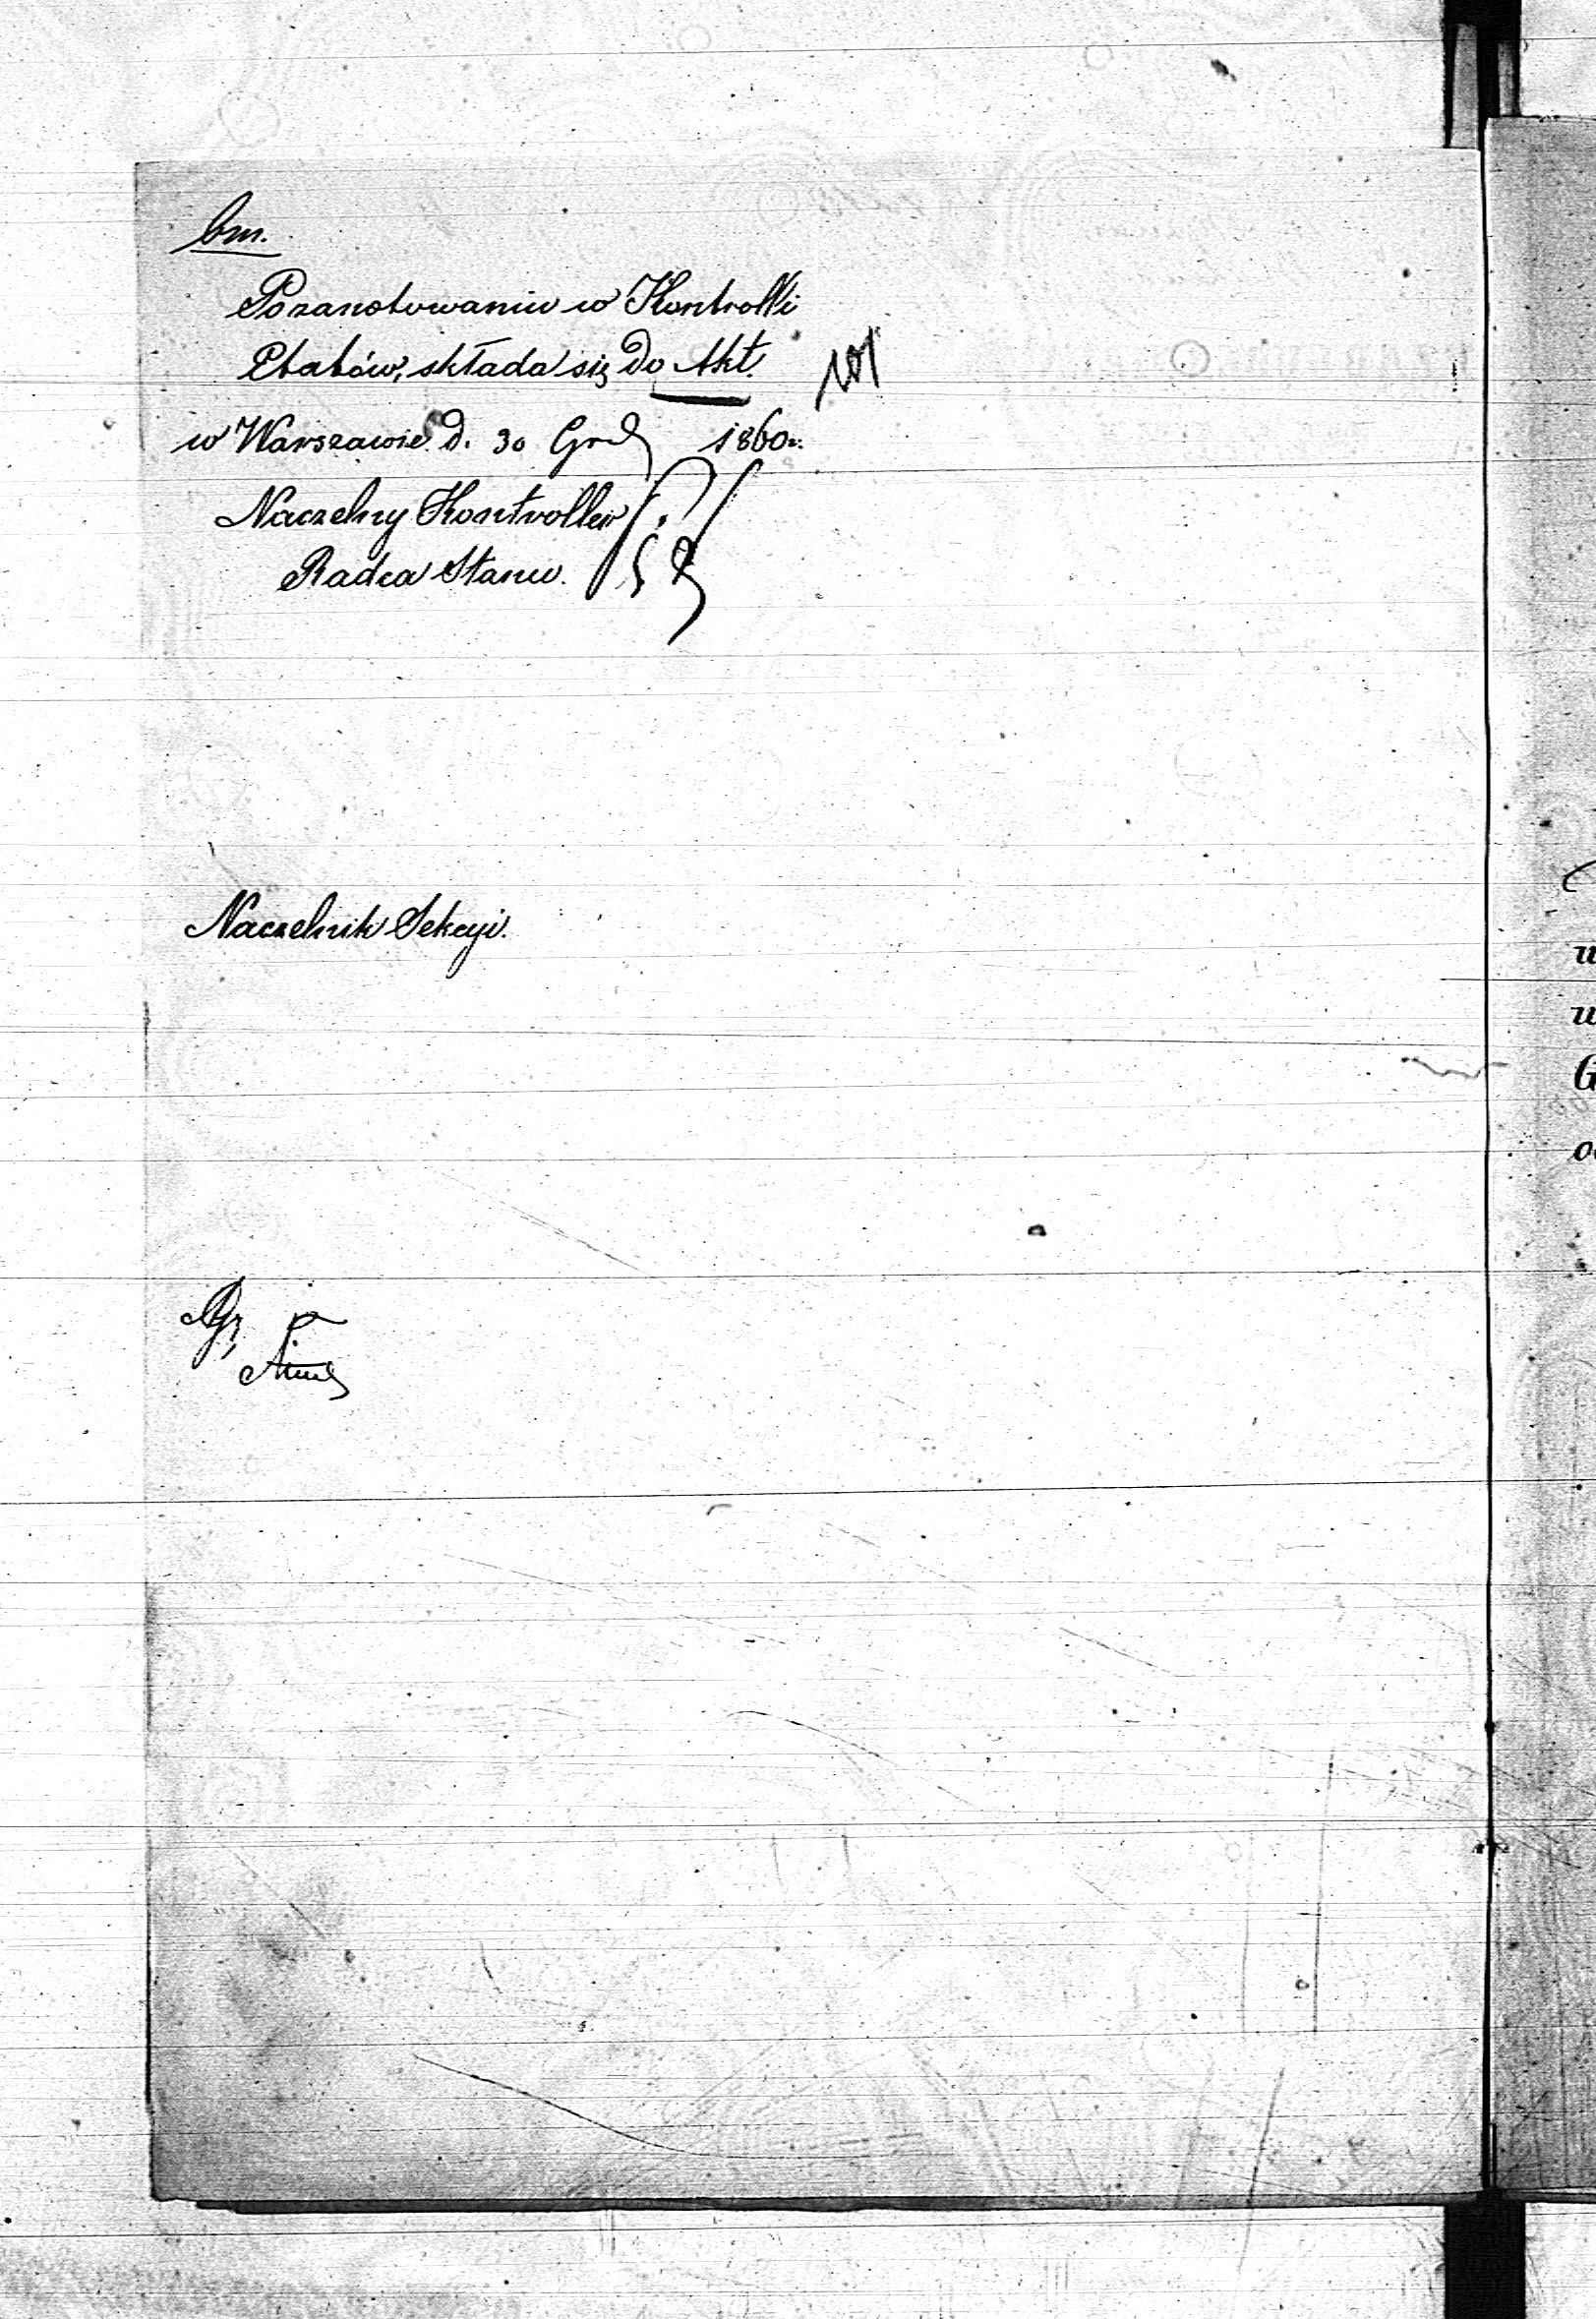 bm.
Pozanotowaniu w Kontrolli
Etatów, składa się do Akt.
w Warszawie d. 30 Grud 1860 r.
Naczelny Kontroller
Radca Stanu.
Naczelnik Sekcyi.